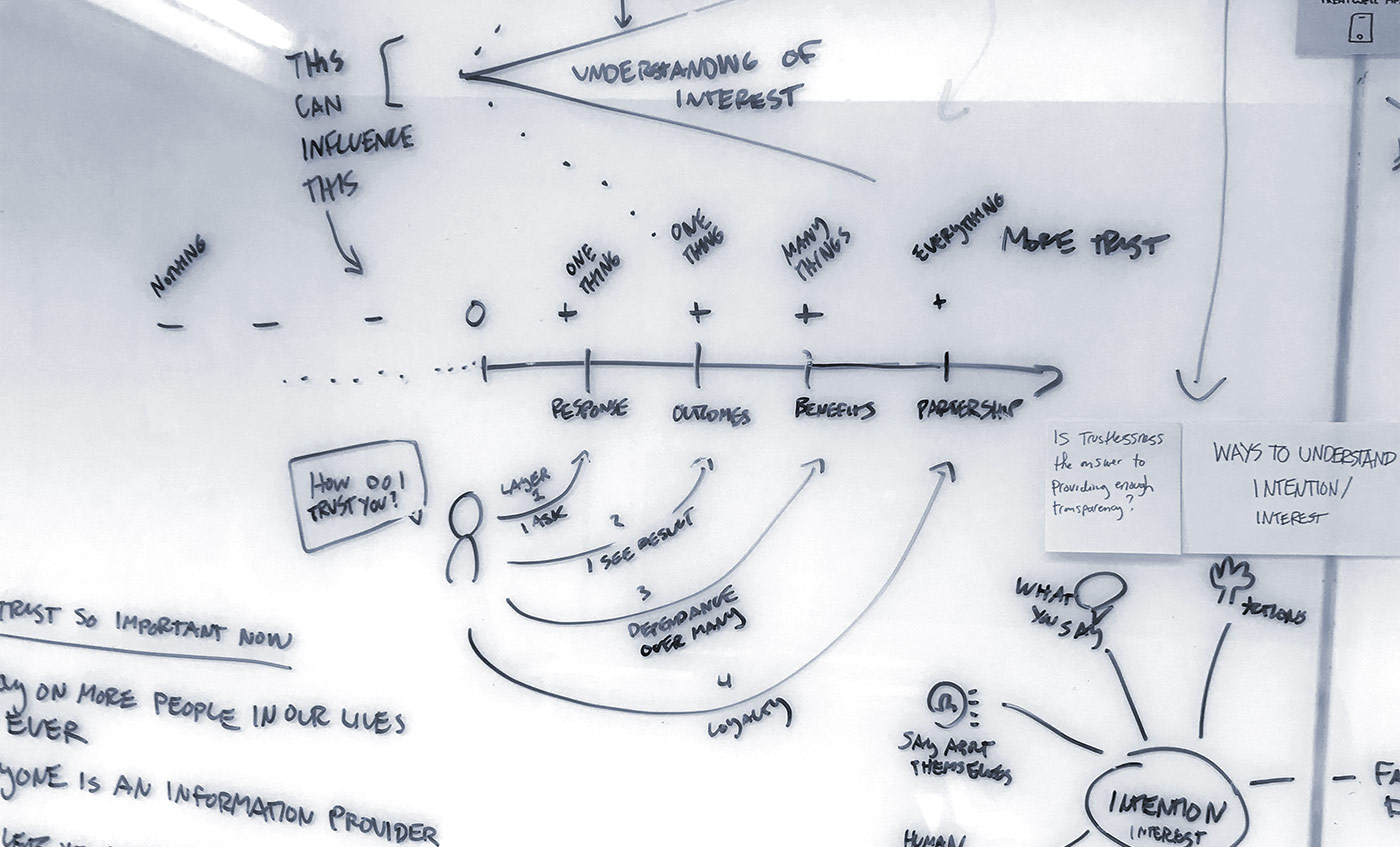 THIS
CAN
INFLUENCE
THIS
UNDERSTANDING OF
INTEREST
NOTHING
ONE
THING
ONE
THING
MANY
THINGS
EVERYTHING
MORE TRUST
- - - 0 + + + +
RESPONSE
OUTCOMES
BENEFITS
PARTERSHIP
HOW DO I
TRUST YOU?
LAYER
1
I ASK
2
I SEE RESULT
3
DEPENDANCE
OVER MANY
4
LOYALTY
Is Trustlessness
the answer to
Providing enough
transparency?
WAYS TO UNDERSTAND
INTENTION/
INTEREST
TRUST SO IMPORTANT NOW
ON MORE PEOPLE IN OUR LIVES
EVER
YONE IS AN INFORMATION PROVIDER
WHAT
YOU SAY
ACTIONS
SAY ABOUT
THEMSELVES
HUMAN
INTENTION
INTEREST